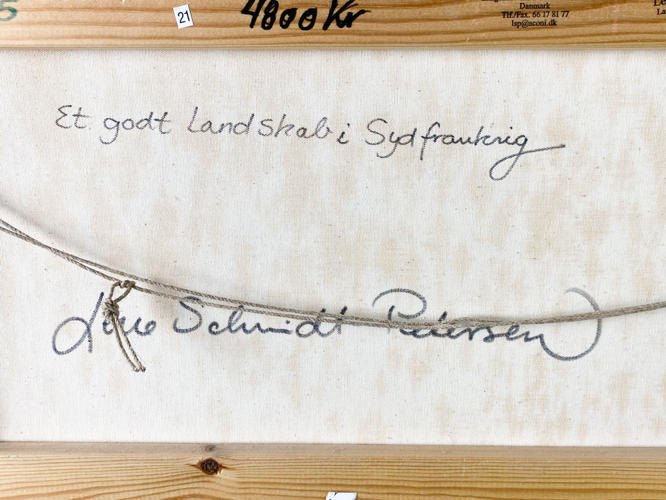 5
21
4800 Kr
Danmark
Tlf./Fax. 66 17 81 77
lsp@aconi.dk
Et godt Landskab i Sydfrankrig
Schmidt Petersen